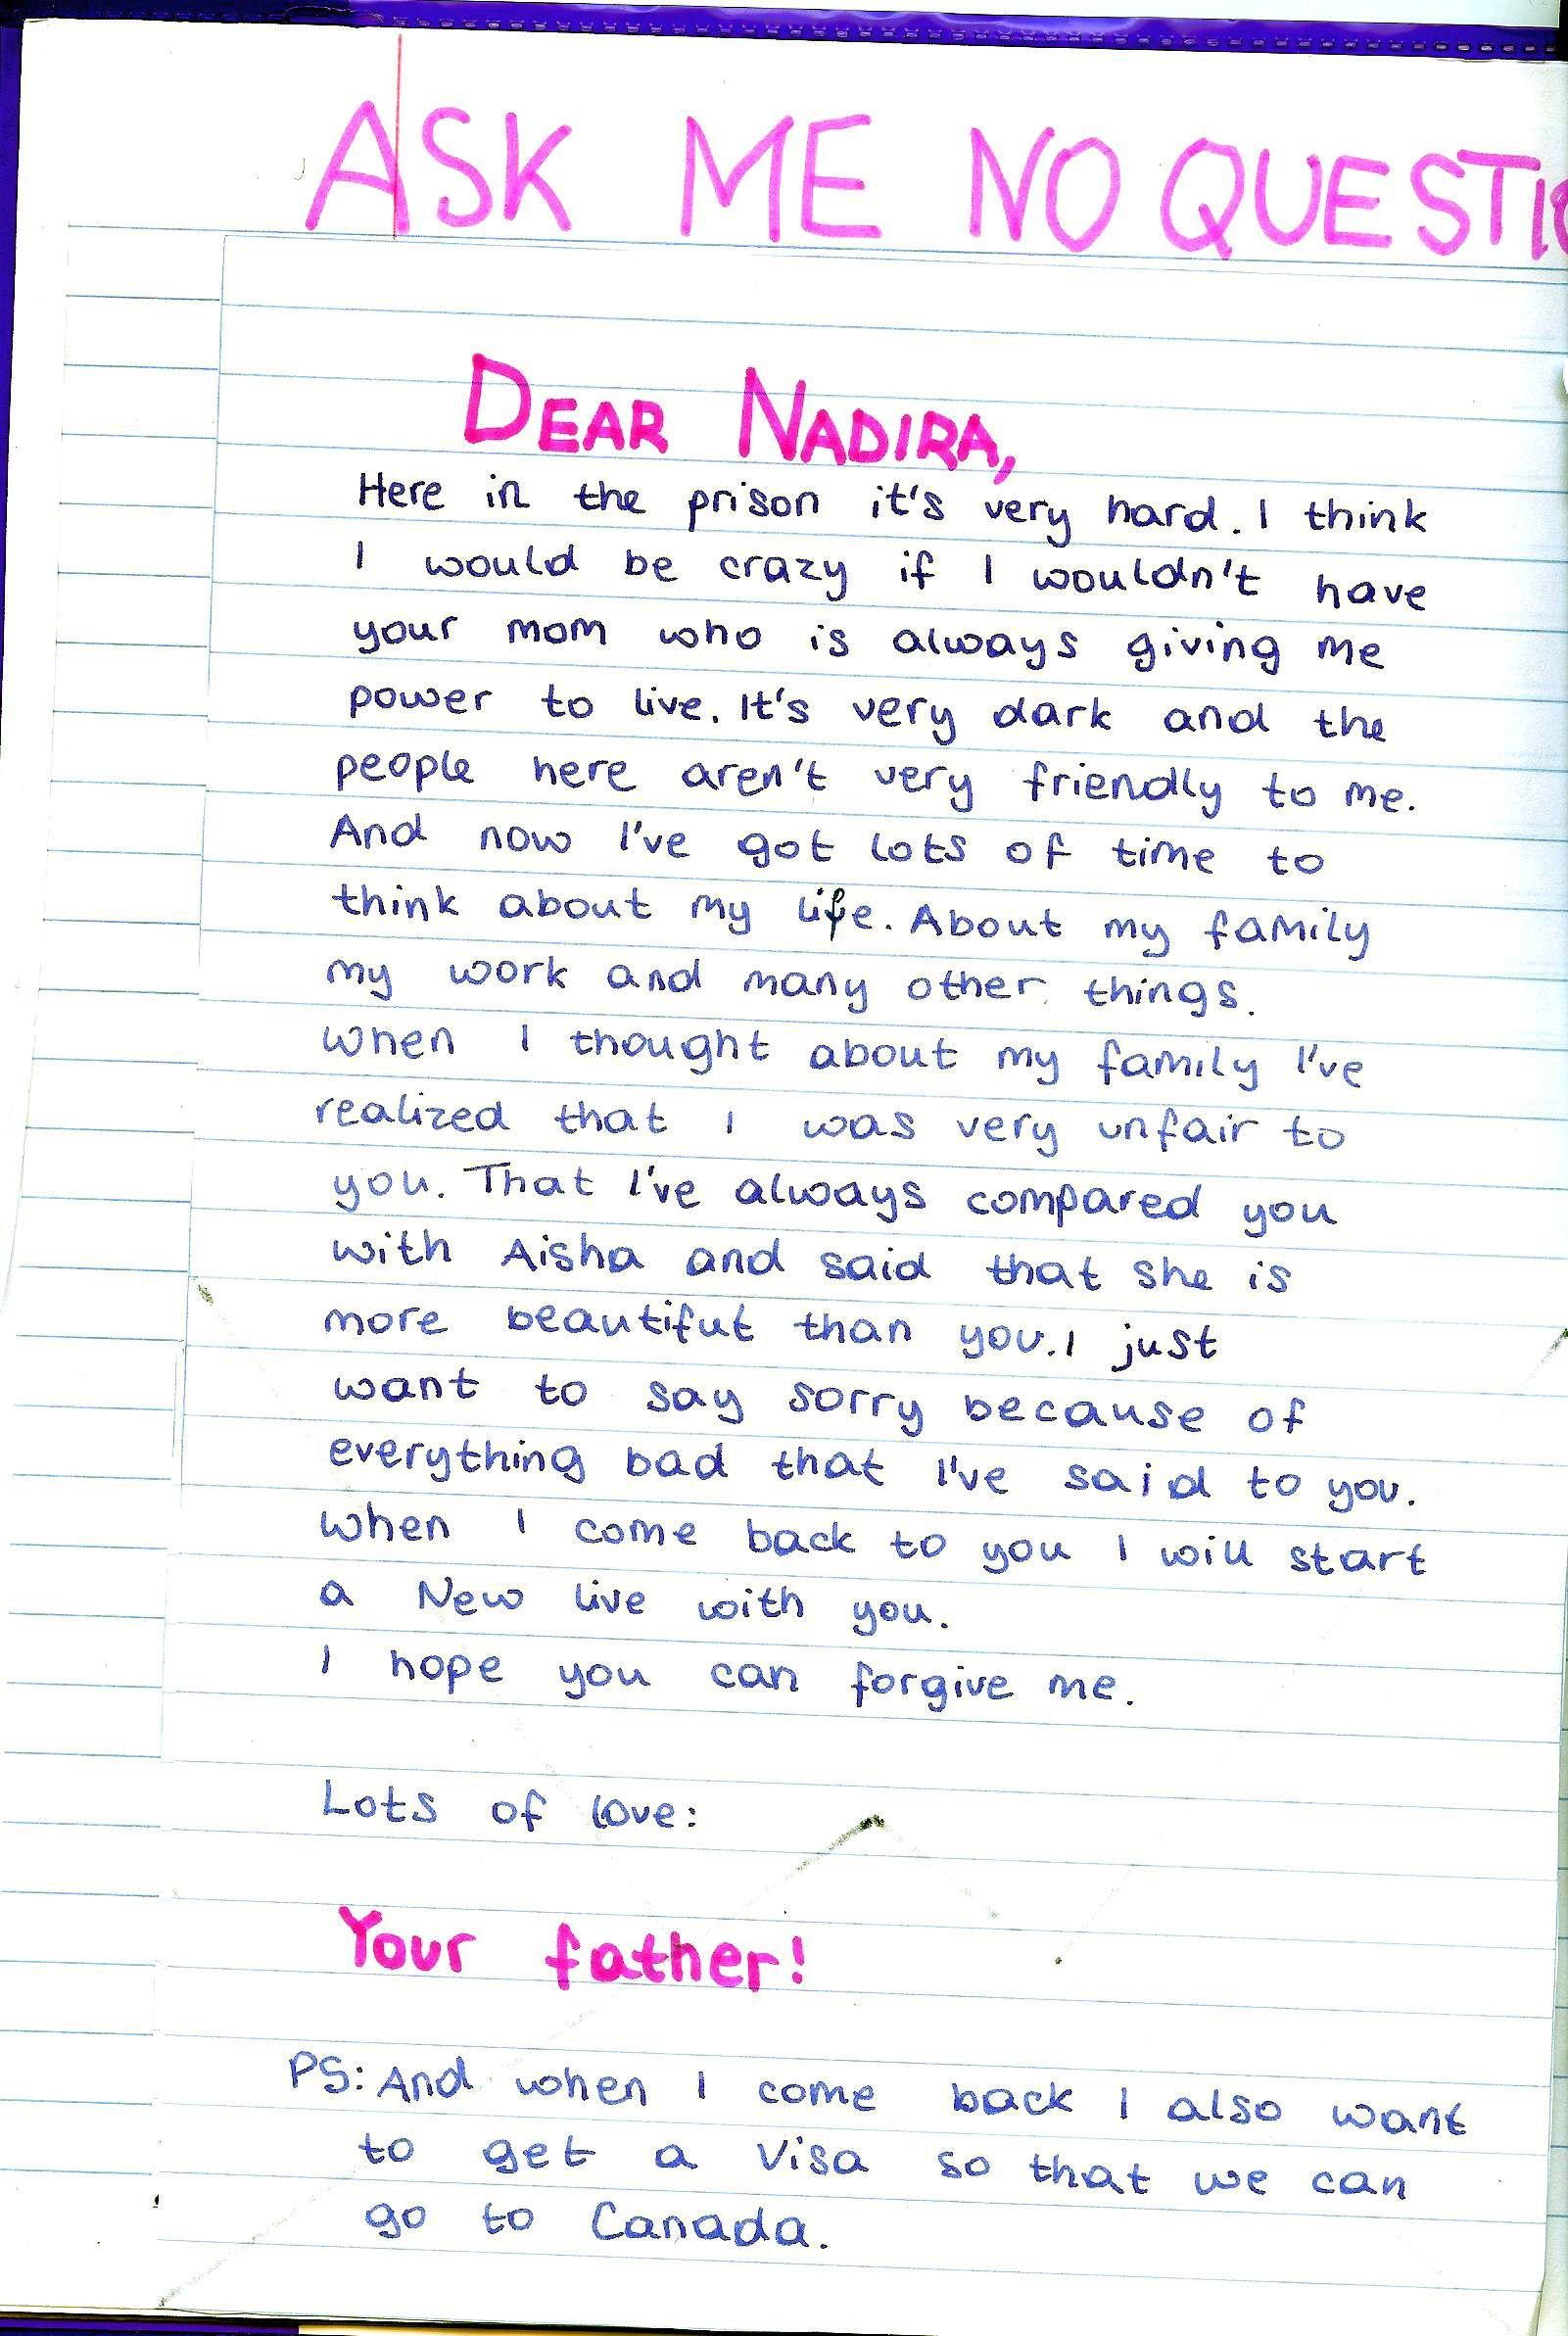 ASK ME NO QUESTIO
DEAR NADIRA,
Here in the prison it's very hard. I think
I would be crazy if I wouldn't have
your mom who is always giving me
power to live. It's very dark and the
people here aren't very friendly to me.
And now I've got lots of time to
think about my life. About my family
my work and many other things.
When I thought about my family I've
realized that I was very unfair to
you. That I've always compared you
with Aisha and said that she is
more beautifut than you. I just
want to say sorry because of
everything bad that I've said to you.
When I come back to you I will start
a New live with you.
I hope you can forgive me.
Lots of love:
Your father!
PS: And when I come back I also want
to get a Visa so that we can
go to Canada.